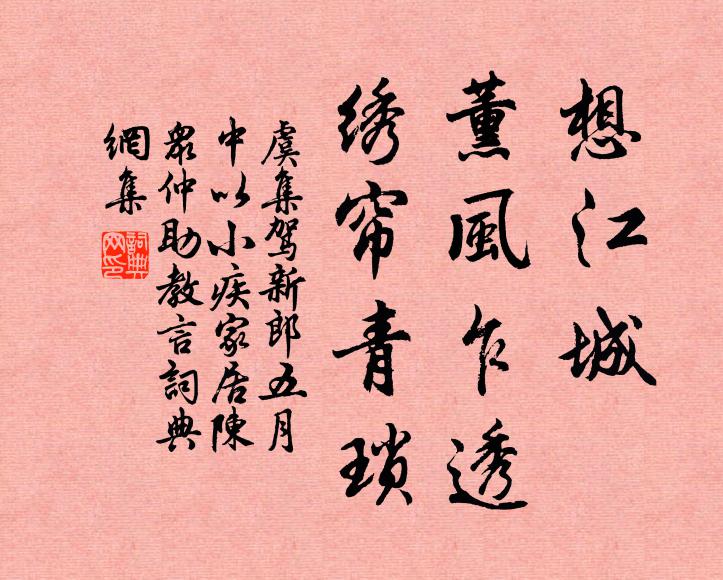 想江城
薰風乍透
绣帘青瑣
虞集驾新郎五月
中以小疾家居陳
衆仲助教言詞典
網集
詞典
网印